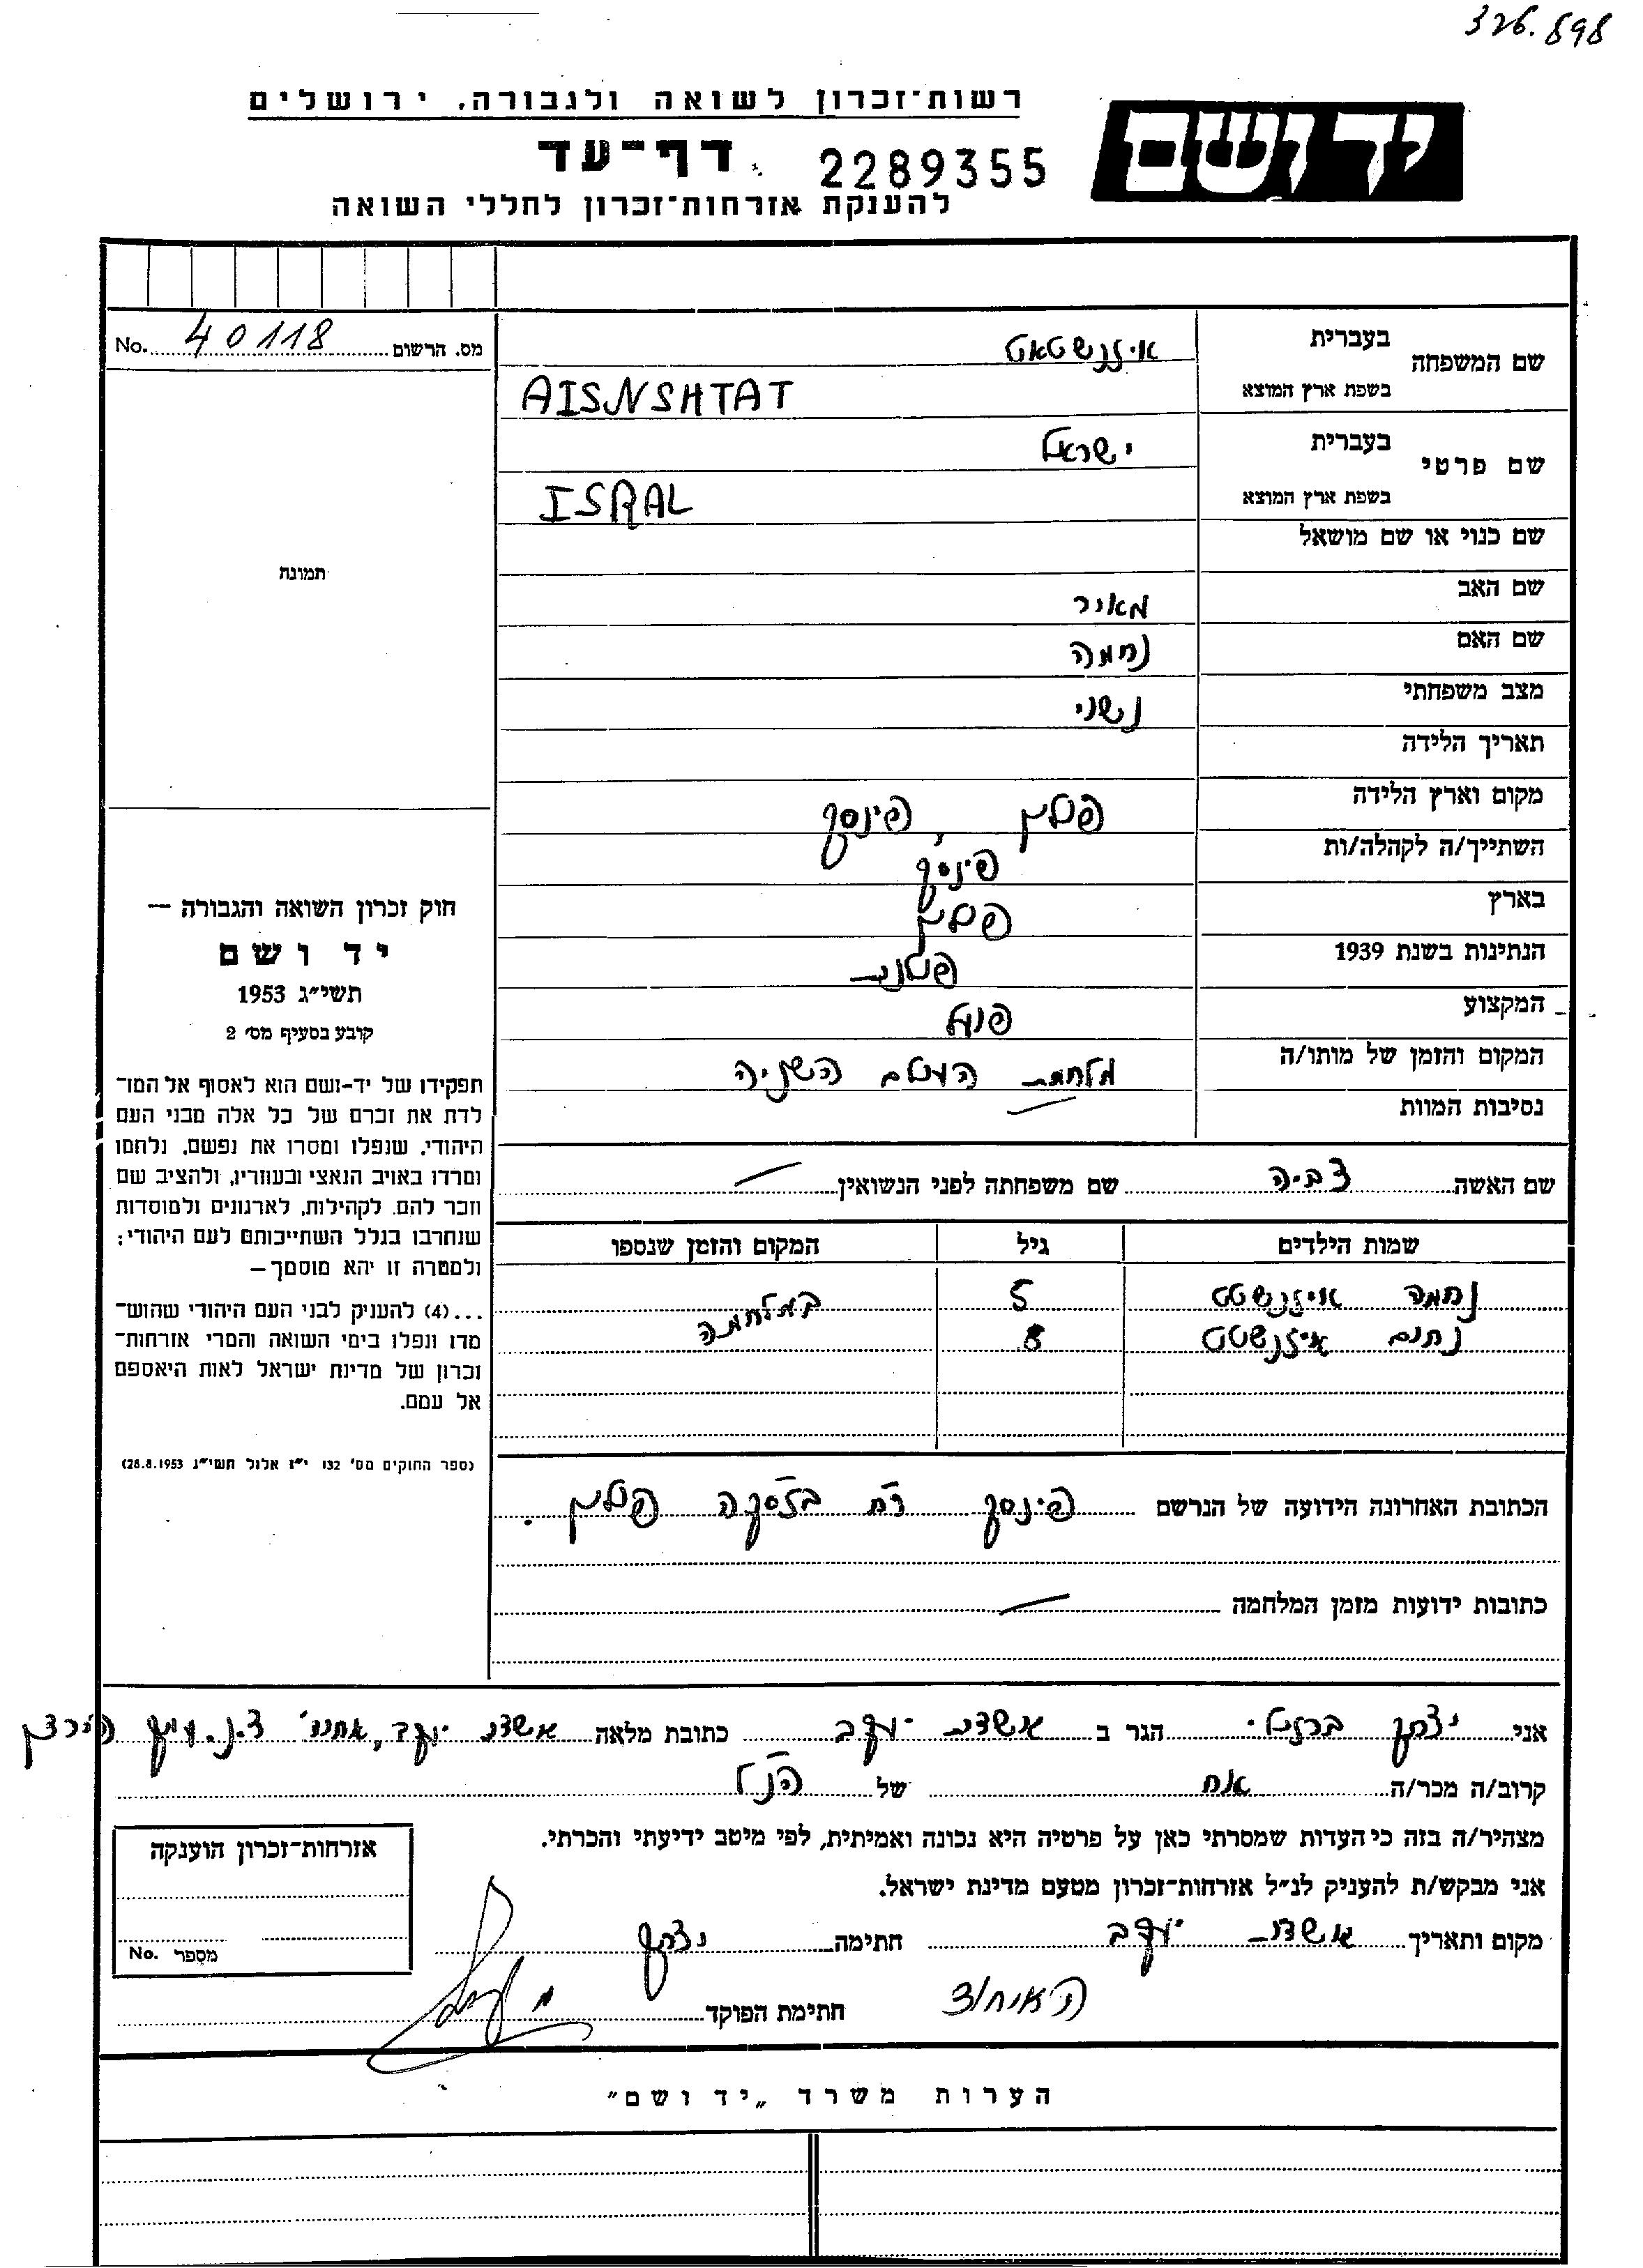 326.898
רשות־זכרון לשואה ולגבורה, ירושלים
יד ושם
דף־עד 2289355
להענקת אזרחות־זכרון לחללי השואה
מס. הרשום 40118 No.
שם המשפחה
בעברית איזנשטאט
בשפת ארץ המוצא AISNSHTAT
שם פרטי
בעברית ישראל
בשפת ארץ המוצא ISRAL
שם כנוי או שם מושאל
שם האב מאיר
שם האם נחמה
מצב משפחתי נשוי
תאריך הלידה
מקום וארץ הלידה פולין, פינסק
השתייך/ה לקהלה/ות פינסק
בארץ פולין
הנתינות בשנת 1939 פולנית
המקצוע פועל
המקום והזמן של מותו/ה מלחמת העולם השניה
נסיבות המוות
תמונה
חוק זכרון השואה והגבורה —
יד ושם
תשי״ג 1953
קובע בסעיף מס׳ 2
תפקידו של יד-ושם הוא לאסוף אל המו־
לדת את זכרם של כל אלה מבני העם
היהודי, שנפלו ומסרו את נפשם, נלחמו
ומרדו באויב הנאצי ובעוזריו, ולהציב שם
וזכר להם, לקהילות, לארגונים ולמוסדות
שנחרבו בגלל השתייכותם לעם היהודי;
ולמטרה זו יהא מוסמך—
...(4) להעניק לבני העם היהודי שהוש־
מדו ונפלו בימי השואה והמרי אזרחות־
זכרון של מדינת ישראל לאות היאספם
אל עמם.
(ספר החוקים מס׳ 132 י״ז אלול תשי״ג 28.8.1953)
שם האשה צביה שם משפחתה לפני הנשואין
שמות הילדים גיל המקום והזמן שנספו
נחמה איזנשטט 5 במלחמה
נחום איזנשטט 8
הכתובת האחרונה הידועה של הנרשם פינסק רח פולין.
כתובות ידועות מזמן המלחמה
אני יצחק ברזילי הגר ב אשדות יעקב כתובת מלאה אשדות יעקב, אחוד ד.נ. עמק הירדן
קרוב/ה מכר/ה אח של הנ"ל
מצהיר/ה בזה כי העדות שמסרתי כאן על פרטיה היא נכונה ואמיתית, לפי מיטב ידיעתי והכרתי.
אני מבקש/ת להעניק לנ״ל אזרחות־זכרון מטעם מדינת ישראל.
מקום ותאריך אשדות יעקב חתימה יצחק
האיחוד חתימת הפוקד
אזרחות־זכרון הוענקה
מספר No.
הערות משרד „יד ושם״